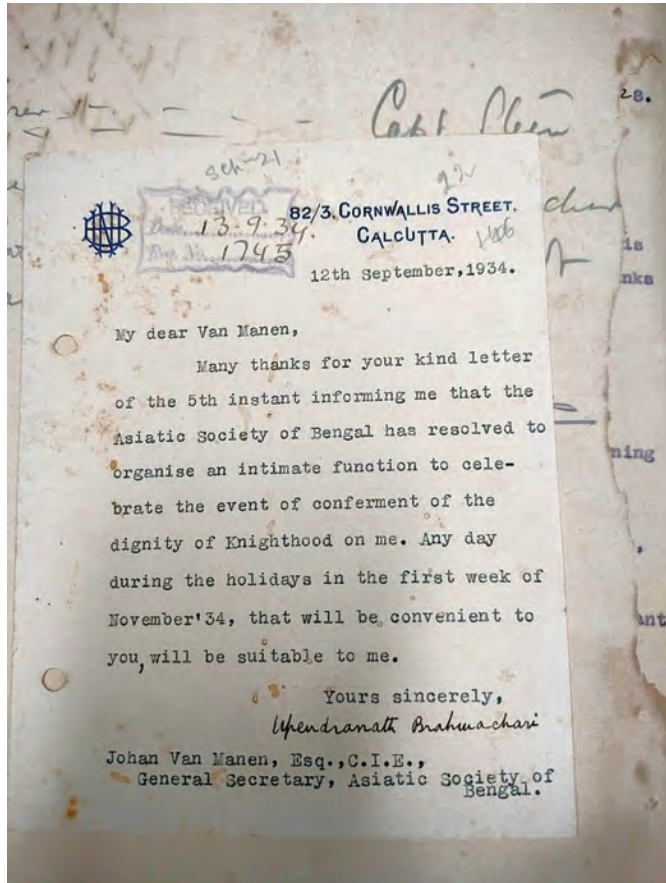 28.
Capt
Sep-21
22
RECEIVED
82/3, CORNWALLIS STREET.
Date 13-9-34.
CALCUTTA.
146
Reg. No. 1745
is
12th September,1934.
nks
My dear Van Manen,
Many thanks for your kind letter
of the 5th instant informing me that the
Asiatic Society of Bengal has resolved to
organise an intimate function to cele-
ning
brate the event of conferment of the
dignity of Knighthood on me. Any day
during the holidays in the first week of
November'34, that will be convenient to
ant
you, will be suitable to me.
Yours sincerely,
Upendranath Brahmachari
Johan Van Manen, Esq.,C.I.E.,
General Secretary, Asiatic Society of
Bengal.